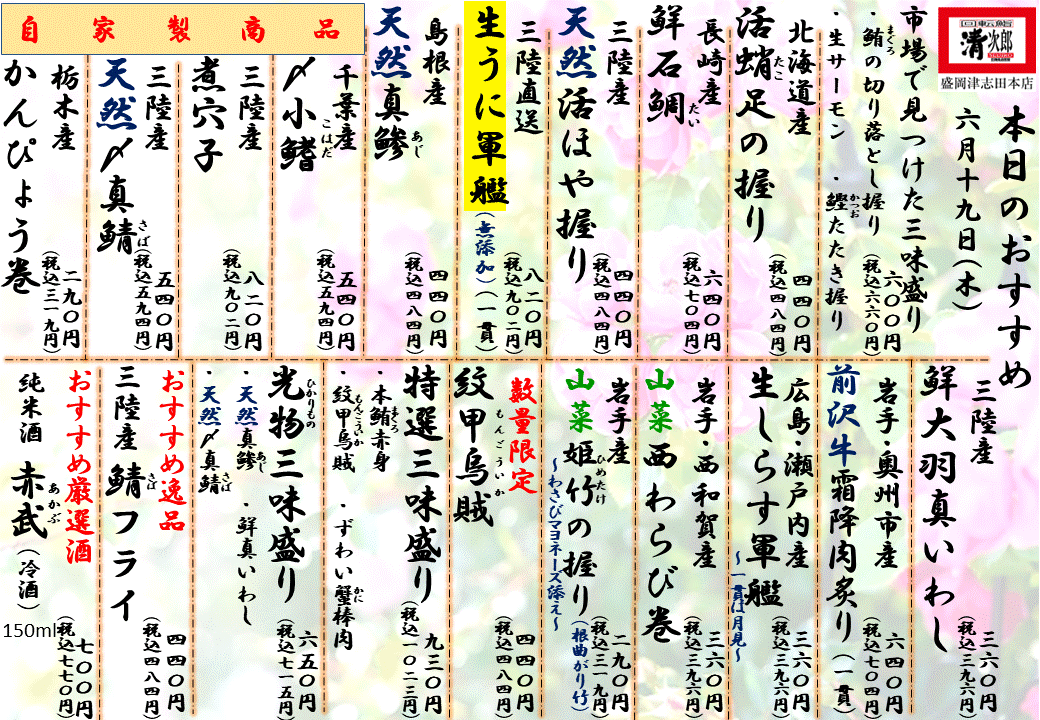 回転鮨
清次郎
盛岡津志田本店
本日のおすすめ
六月十九日(木)
市場で見つけた三味盛り
・鮪の切り落とし握り
まぐろ
・生サーモン ・鰹たたき握り
かつお
六〇〇円
(税込六六〇円)
北海道産
活蛸足の握り
たこ
四四〇円
(税込四八四円)
長崎産
鮮石鯛
たい
六四〇円
(税込七〇四円)
三陸産
天然活ほや握り
四四〇円
(税込四八四円)
三陸直送
生うに軍艦
(無添加)(一貫)
八二〇円
(税込九〇二円)
島根産
天然真鯵
あじ
四四〇円
(税込四八四円)
自家製商品
千葉産
〆小鰭
こはだ
五四〇円
(税込五九四円)
三陸産
煮穴子
八二〇円
(税込九〇二円)
三陸産
天然〆真鯖
さば
五四〇円
(税込五九四円)
栃木産
かんぴょう巻
二九〇円
(税込三一九円)
三陸産
鮮大羽真いわし
三六〇円
(税込三九六円)
岩手・奥州市産
前沢牛霜降肉炙り(一貫)
六四〇円
(税込七〇四円)
広島・瀬戸内産
生しらす軍艦
～一貫は月見～
三六〇円
(税込三九六円)
岩手・西和賀産
山菜西わらび巻
三六〇円
(税込三九六円)
岩手産
山菜姫竹の握り(根曲がり竹)
ひめたけ
～わさびマヨネーズ添え～
二九〇円
(税込三一九円)
数量限定
紋甲烏賊
もんごういか
四四〇円
(税込四八四円)
特選三味盛り
・本鮪赤身
まぐろ
・紋甲烏賊 ・ずわい蟹棒肉
もんごういか
かに
九三〇円
(税込一〇二三円)
光物三味盛り
ひかりもの
・天然真鯵 ・鮮真いわし
あじ
・天然〆真鯖
さば
六五〇円
(税込七一五円)
おすすめ逸品
三陸産 鯖フライ
さば
四四〇円
(税込四八四円)
おすすめ厳選酒
純米酒 赤武(冷酒)
あかぶ
150ml
七〇〇円
(税込七七〇円)